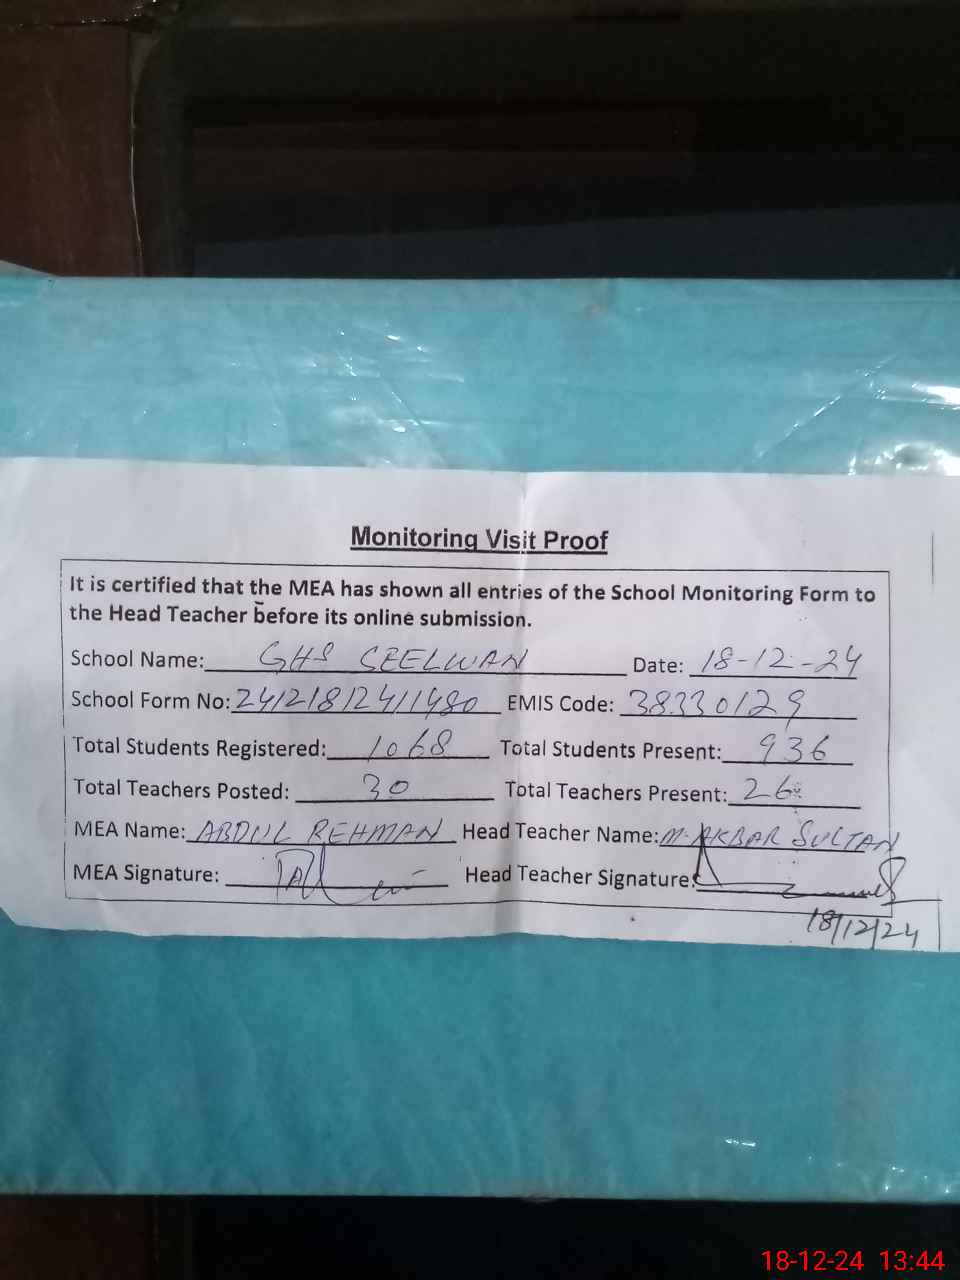 Monitoring Visit Proof
It is certified that the MEA has shown all entries of the School Monitoring Form to
the Head Teacher before its online submission.
School Name: GHS SEELWAN Date: 18-12-24
School Form No: 241218124111480 EMIS Code: 38330129
Total Students Registered: 1068 Total Students Present: 936
Total Teachers Posted: 30 Total Teachers Present: 26
MEA Name: ABDUL REHMAN Head Teacher Name: M. AKBAR SULTAN
MEA Signature: Head Teacher Signature:
18/12/24
18-12-24 13:44